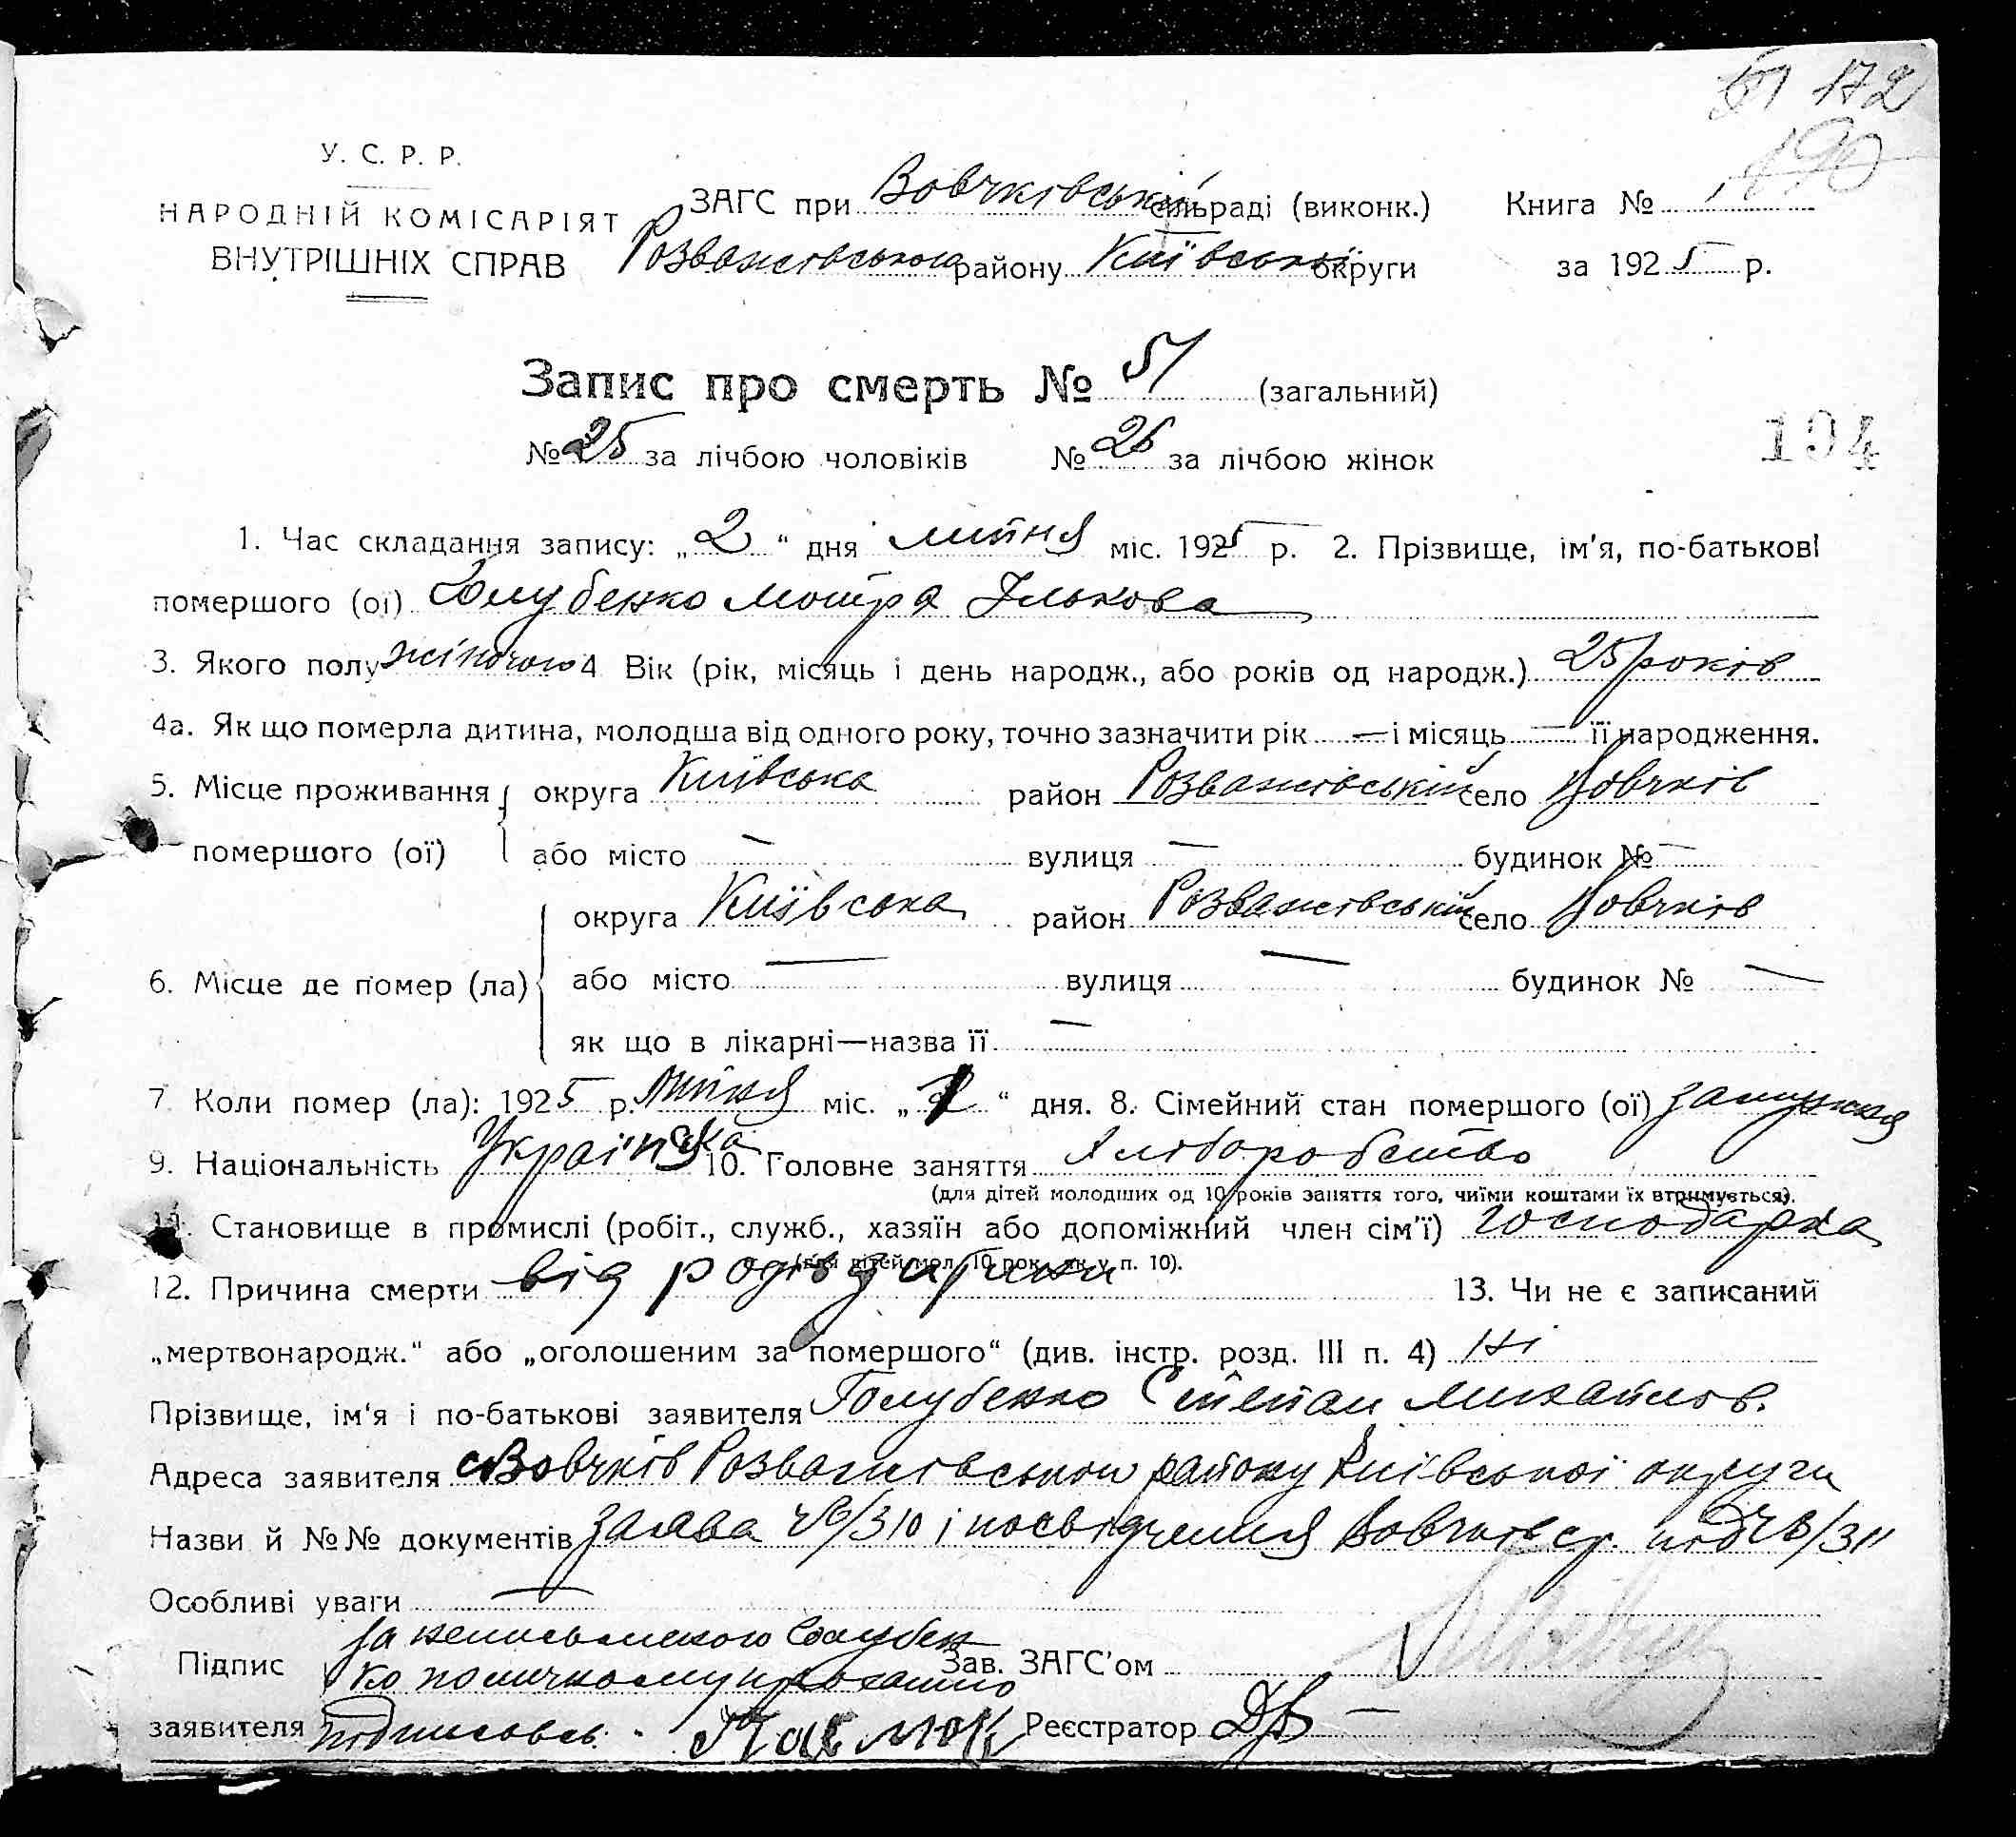 172
190
У. С. Р. Р.
НАРОДНІЙ КОМІСАРІЯТ
ВНУТРІШНІХ СПРАВ
ЗАГС при Вовчківській сільраді (виконк.) Книга №
Розважівського району Київської округи за 1925 р.
Запис про смерть № 51 (загальний)
№ 25 за лічбою чоловіків № 26 за лічбою жінок
194
1. Час складання запису: „2“ дня липня міс. 1925 р. 2. Прізвище, ім'я, по-батькові
помершого (ої) Голубенко Мотря Ількова
3. Якого полу жіночого 4 Вік (рік, місяць і день народж., або років од народж.) 25 років
4а. Як що померла дитина, молодша від одного року, точно зазначити рік — і місяць — її народження.
5. Місце проживання округа Київська район Розважівський село Вовчків
помершого (ої) або місто — вулиця — будинок № —
округа Київська район Розважівський село Вовчків
6. Місце де помер (ла) або місто — вулиця — будинок № —
як що в лікарні—назва її —
7. Коли помер (ла): 1925 р. липня міс. „ “ дня. 8. Сімейний стан помершого (ої) замужня
9. Національність Українка 10. Головне заняття Хліборобство
(для дітей молодших од 10 років заняття того, чиїми коштами їх втримується).
11. Становище в промислі (робіт., служб., хазяїн або допоміжний член сім'ї) господарка
(для дітей мол. 10 рок., як у п. 10).
12. Причина смерти від 13. Чи не є записаний
„мертвонародж.“ або „оголошеним за помершого“ (див. інстр. розд. III п. 4) Ні
Прізвище, ім'я і по-батькові заявителя Голубенко Степан Михайлов.
Адреса заявителя с Вовчків Розважівського району Київської округи
Назви й №№ документів Заява ч 6/310 і посвідчення Вовчків ср. під ч 6/311
Особливі уваги —
Підпис за неписьменого Голубен
ко по личному проханню Зав. ЗАГС'ом
заявителя підписався. Реєстратор